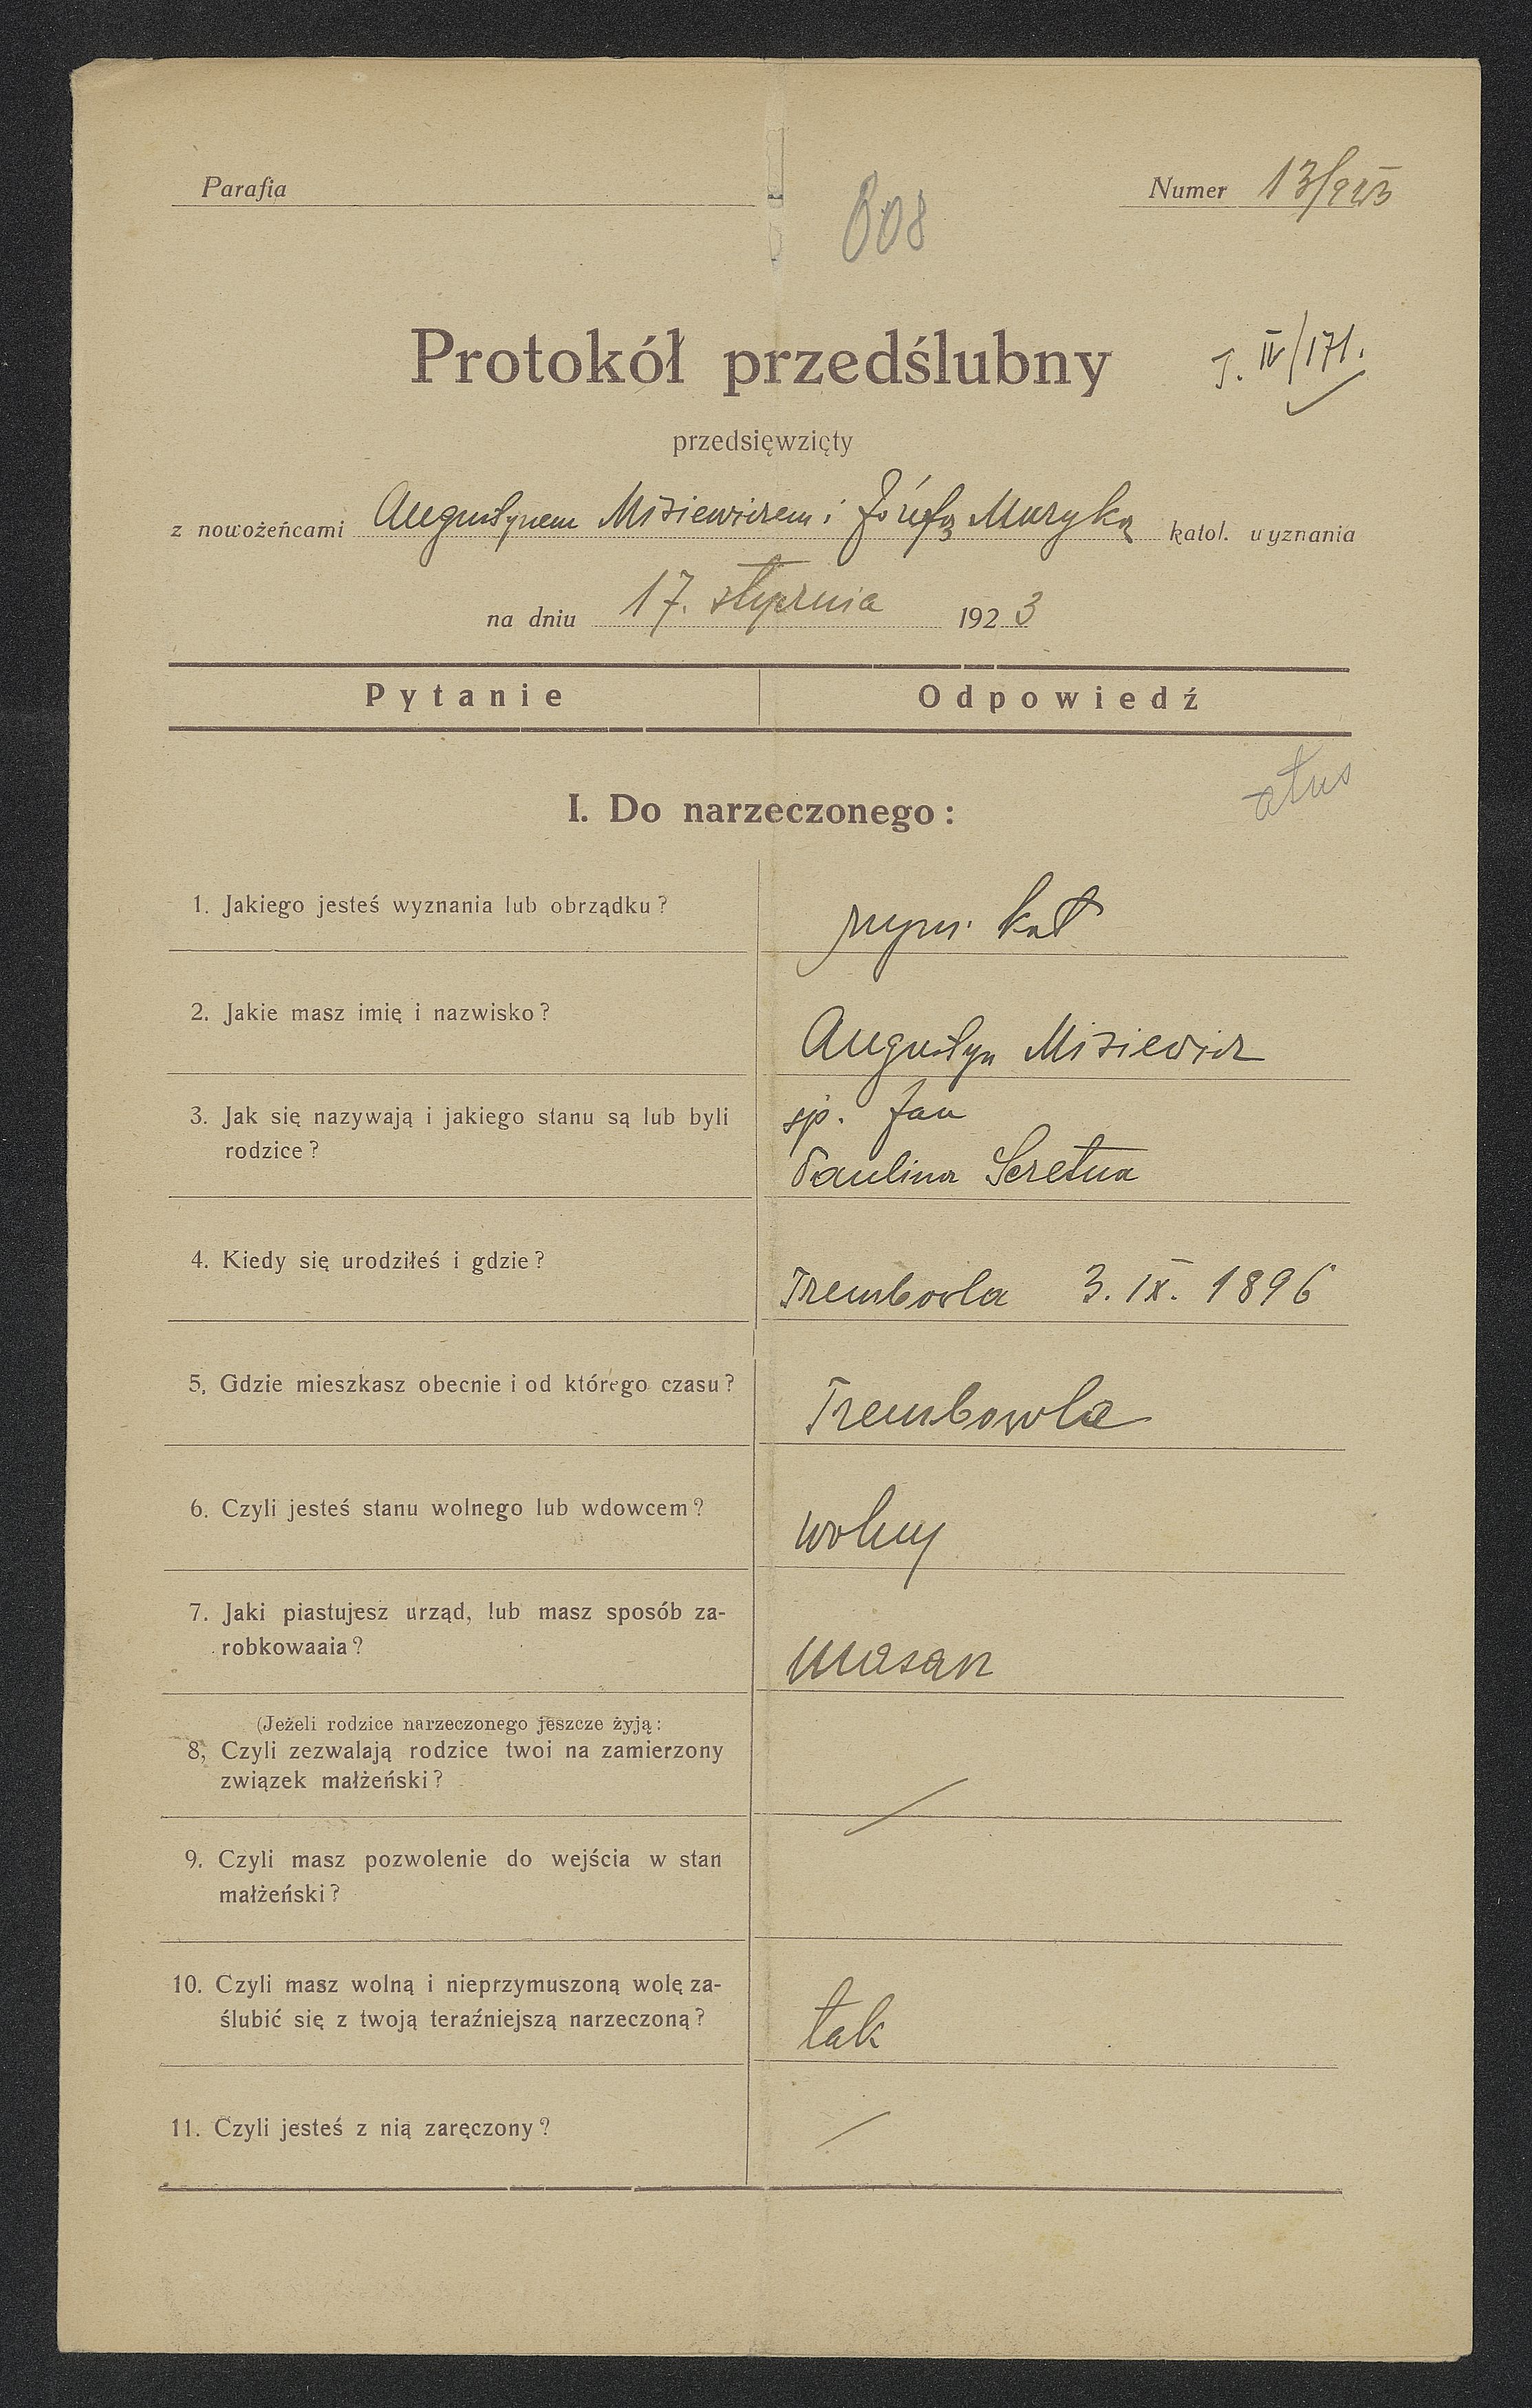 Parafia
Numer 13/923
808
Protokół przedślubny
T. IV/171.
przedsięwzięty
z nowożeńcami Augustynem Misiewiczem i Józefą Muzyką katol. wyznania
na dniu 17. stycznia 1923
Pytanie Odpowiedź
I. Do narzeczonego:
1. Jakiego jesteś wyznania lub obrządku? rzym. kat
2. Jakie masz imię i nazwisko? Augustyn Misiewicz
3. Jak się nazywają i jakiego stanu są lub byli sp. Jan
rodzice? Paulina Seretna
4. Kiedy się urodziłeś i gdzie? Trembowla 3. IX. 1896
5. Gdzie mieszkasz obecnie i od którego czasu? Trembowla
6. Czyli jesteś stanu wolnego lub wdowcem? wolny
7. Jaki piastujesz urząd, lub masz sposób za-
robkowaaia? masarz
(Jeżeli rodzice narzeczonego jeszcze żyją:
8, Czyli zezwalają rodzice twoi na zamierzony
związek małżeński?
9. Czyli masz pozwolenie do wejścia w stan
małżeński?
10. Czyli masz wolną i nieprzymuszoną wolę za-
ślubić się z twoją teraźniejszą narzeczoną? tak
11. Czyli jesteś z nią zaręczony?